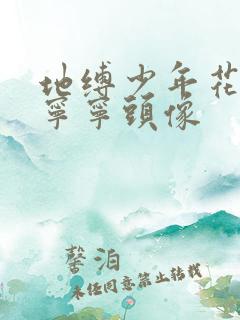 地缚少年花
寧寧頭像
馨泊
未经同意禁止转载